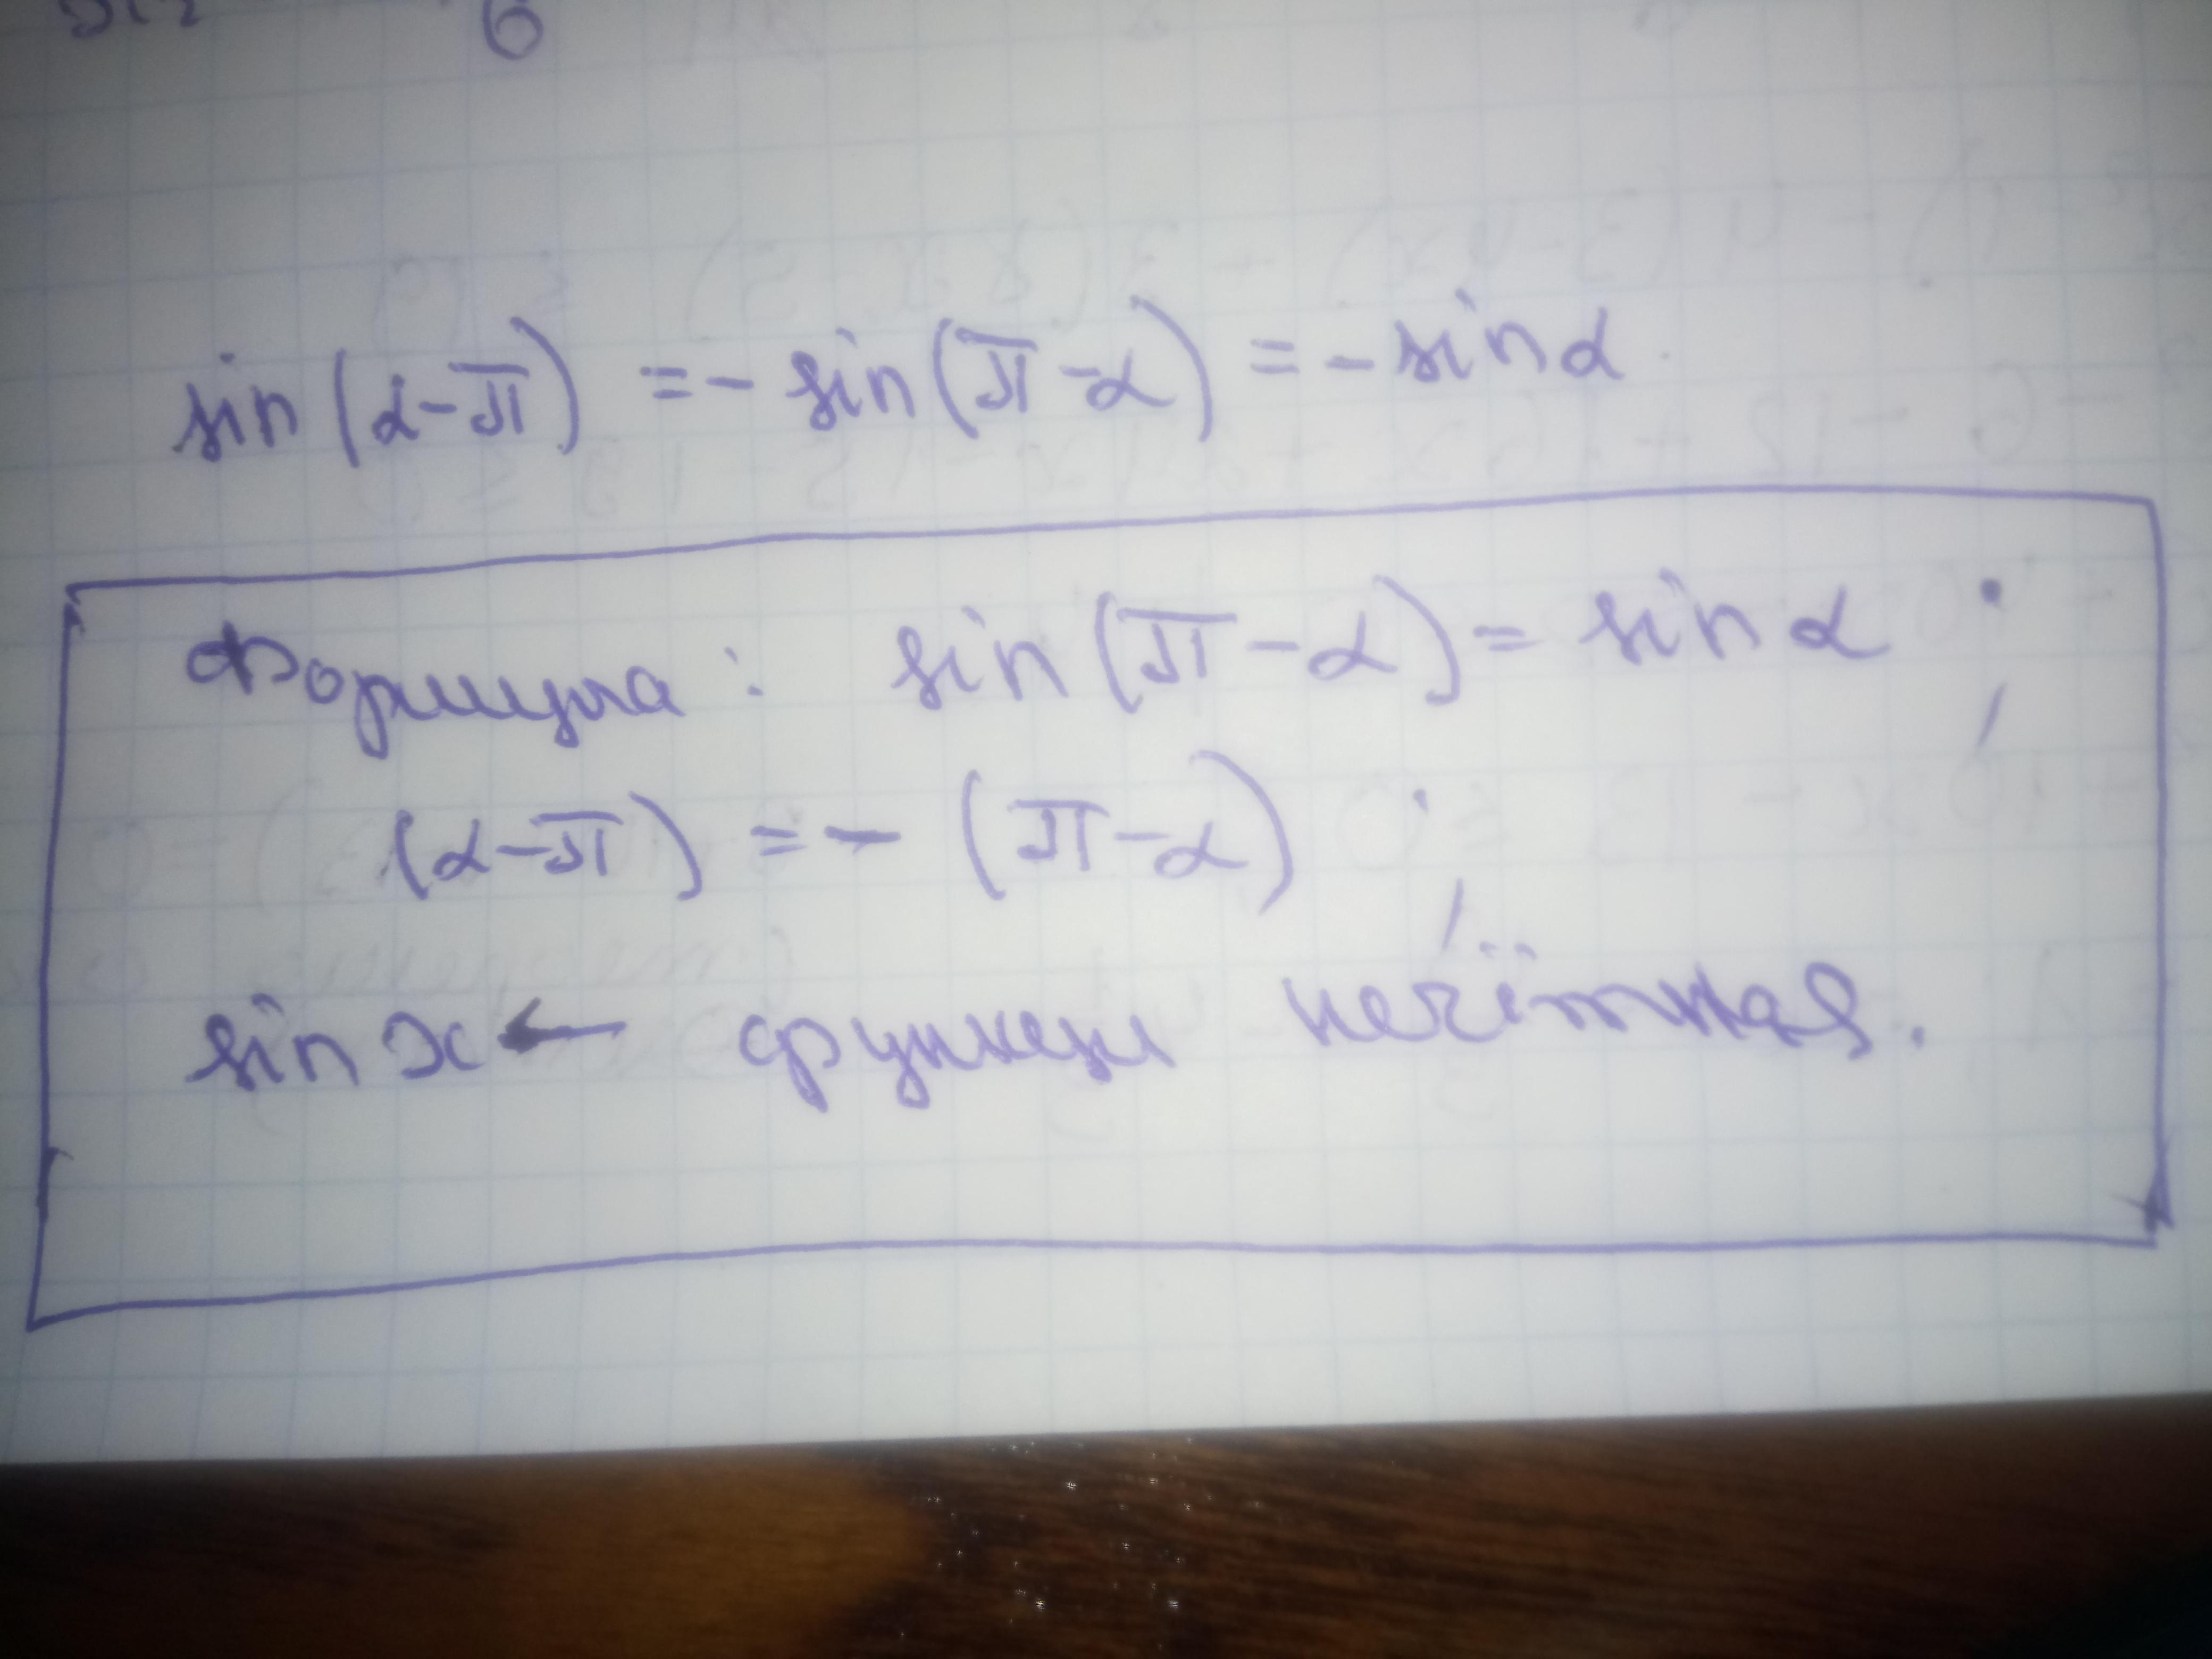 6
sin(α-π) = - sin(π-α) = - sin α
Формула: sin(π-α) = sin α ;
(α-π) = - (π-α) ;
sin x ← функция нечётная.